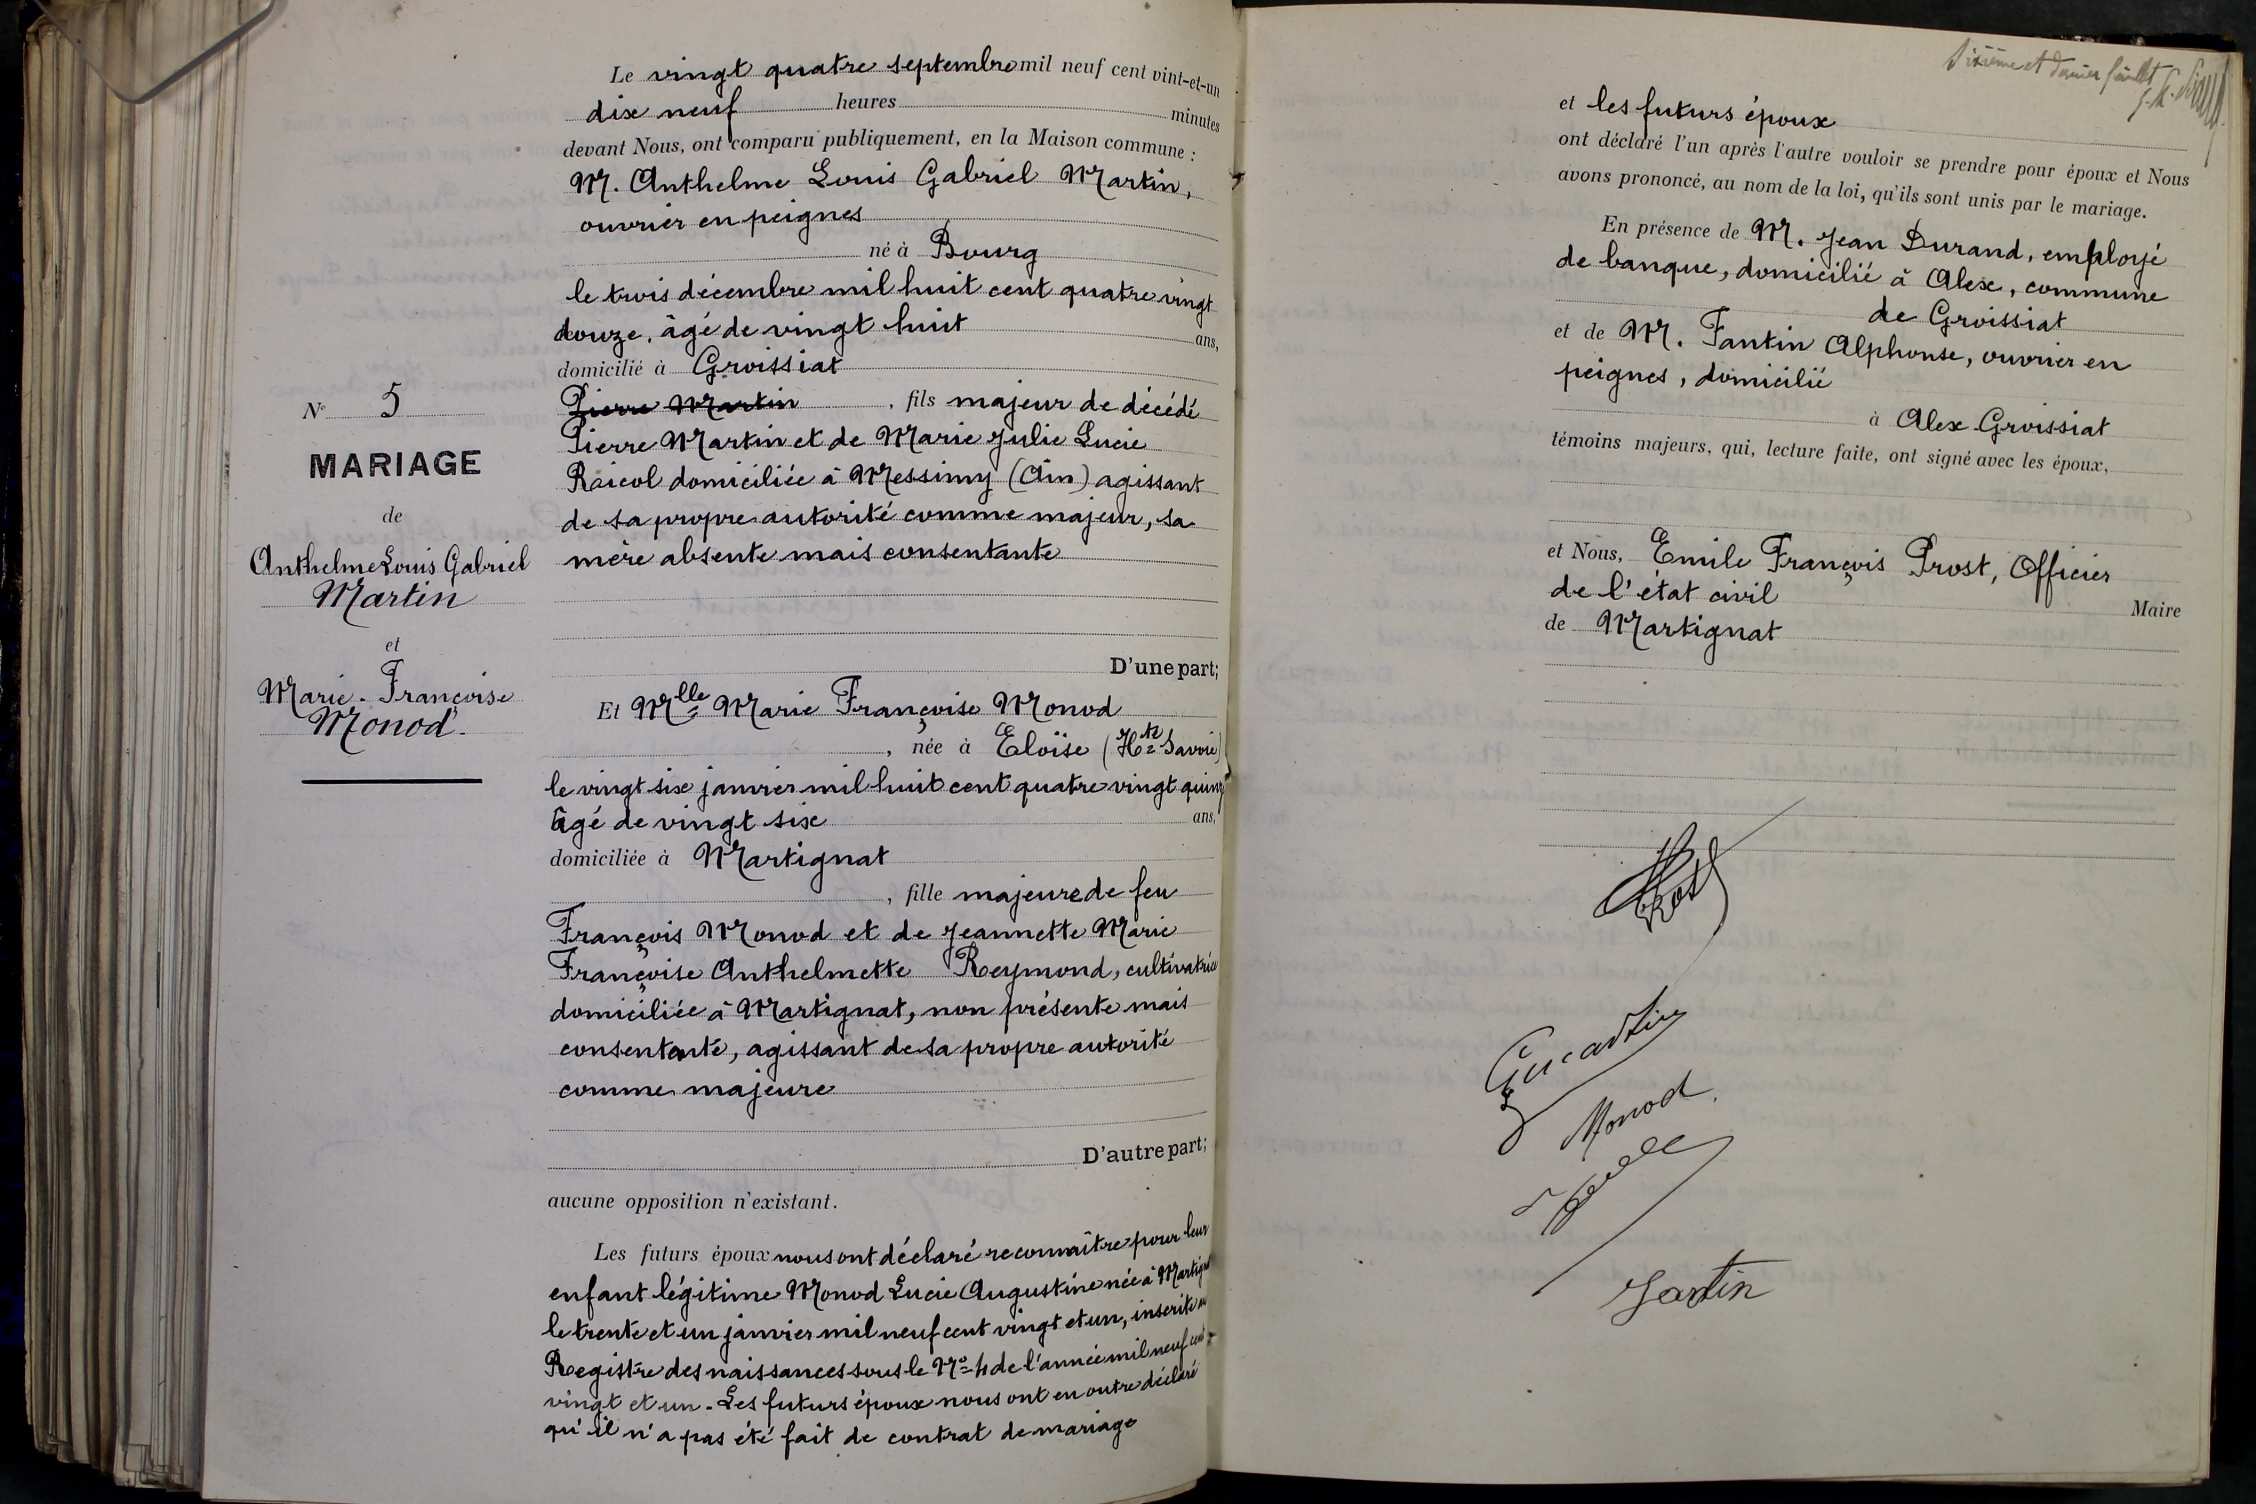 N° 5
MARIAGE
de
Anthelme Louis Gabriel
Martin
et
Marie-Françoise
Monod
Le vingt quatre septembre mil neuf cent vint-et-un
dix neuf heures minutes
devant Nous, ont comparu publiquement, en la Maison commune :
M. Anthelme Louis Gabriel Martin,
ouvrier en peignes
né à Bourg
le trois décembre mil huit cent quatre vingt
douze, âgé de vingt huit ans,
domicilié à Groissiat
Pierre Martin, fils majeur de décédé
Pierre Martin et de Marie Julie Lucie
domiciliée à Messimy (Ain) agissant
de sa propre autorité comme majeur, sa
mère absente mais consentante
D'une part;
Et Mlle Marie Françoise Monod
, née à Eloïse (Hte Savoie)
le vingt six janvier mil huit cent quatre vingt quinz
âgé de vingt six ans,
domiciliée à Martignat
, fille majeure de feu
François Monod et de Jeannette Marie
Françoise Anthelmette Reymond, cultivatrice
domiciliée à Martignat, non présente mais
consentante, agissant de sa propre autorité
comme majeure
D'autre part;
aucune opposition n'existant.
Les futurs époux nous ont déclaré reconnaître pour leur
enfant légitime Monod Lucie Augustine née à Martignat
le trente et un janvier mil neuf cent vingt et un, inscrite au
Registre des naissances sous le No 4 de l'année mil neuf cent
vingt et un. Les futurs époux nous ont en outre déclaré
qu'il n'a pas été fait de contrat de mariage
Sixième et dernier feuillet
et les futurs époux
ont déclaré l'un après l'autre vouloir se prendre pour époux et Nous
avons prononcé, au nom de la loi, qu'ils sont unis par le mariage.
En présence de M. Jean Durand, employé
de banque, domicilié à Alex, commune
de Groissiat
et de M. Fantin Alphonse, ouvrier en
peignes, domicilié
à Alex Groissiat
témoins majeurs, qui, lecture faite, ont signé avec les époux,
et Nous, Emile François Prost, Officier
de l'état civil Maire
de Martignat
Prost
Monod